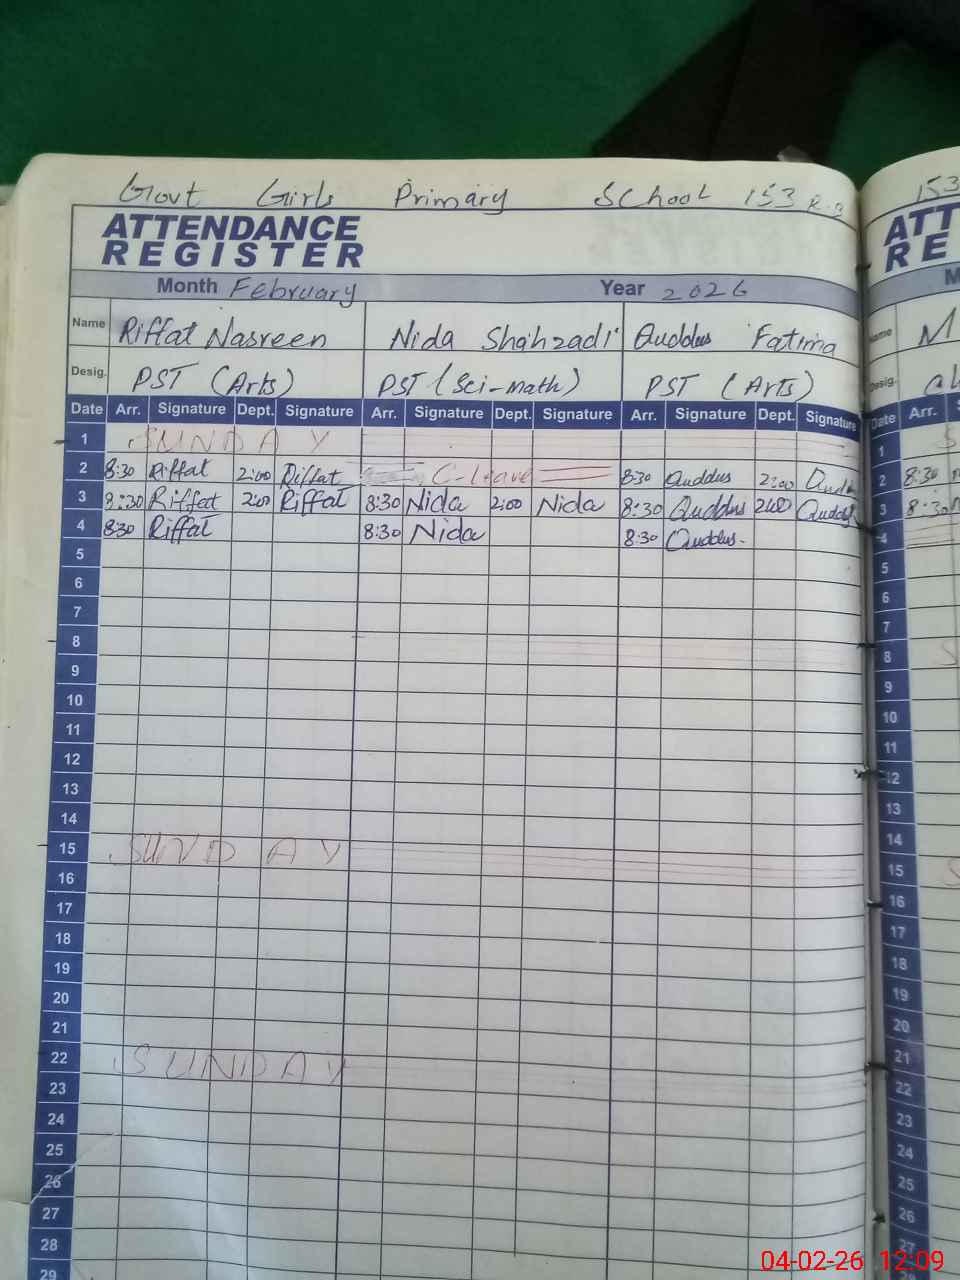 Govt Girls Primary School 153 R.B
ATTENDANCE
REGISTER
Month February Year 2026
Name Riffat Nasreen Nida Shahzadi Quddus Fatima
Desig. PST (Arts) PST (Sci-math) PST (Arts)
Date Arr. Signature Dept. Signature Arr. Signature Dept. Signature Arr. Signature Dept. Signature
1 SUNDAY
2 8:30 Riffat 2:00 Riffat C-Leave 8:30 Quddus 2:00
3 8:30 Riffat 2:00 Riffat 8:30 Nida 2:00 Nida 8:30 Quddus 2:00 Quddus
4 8:30 Riffat 8:30 Nida 8:30 Quddus
5
6
7
8
9
10
11
12
13
14
15 SUNDAY
16
17
18
19
20
21
22 SUNDAY
23
24
25
26
27
28
29
153
ATT
RE
M
Name M
Desig.
Date Arr.
1 S
2 8:30
3 8:30
4
5
6
7
8 S
9
10
11
12
13
14
15 S
16
17
18
19
20
21
22
23
24
25
26
27
04-02-26 12:09